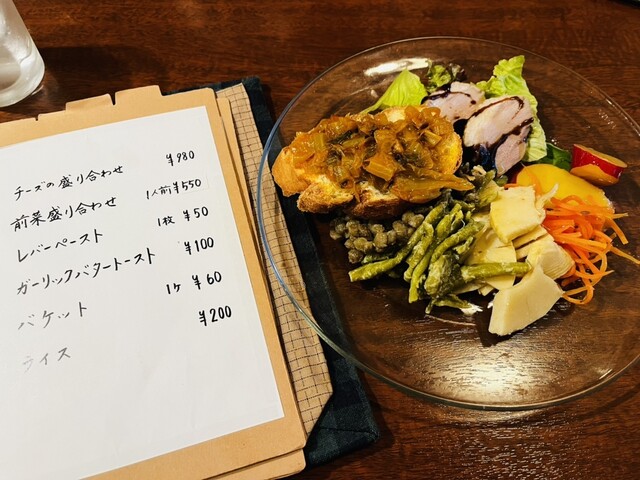 チーズの盛り合わせ ¥980
前菜盛り合わせ 1人前¥550
レバーペースト 1枚 ¥50
ガーリックバタートースト ¥100
バケット 1ケ ¥60
ライス ¥200